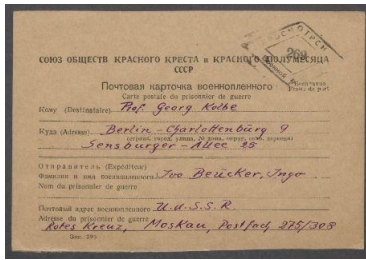 СОЮЗ ОБЩЕСТВ КРАСНОГО КРЕСТА и КРАСНОГО ПОЛУМЕСЯЦА
СССР
269
Почтовая карточка военнопленного
Carte postale du prisonnier de guerre
Franc de port
Кому (Destinataire) Prof. Georg Kolbe
Куда (Adresse) Berlin - Charlottenburg 9
Sensburger - Allee 25
Отправитель (Expéditeur)
Фамилия и имя военнопленного Ivo Beucker, Ingo
Nom du prisonnier de guerre
Почтовый адрес военнопленного U.d.S.S.R.
Adresse du prisonnier de guerre
Rotes Kreuz, Moskau, Postfach 275/308